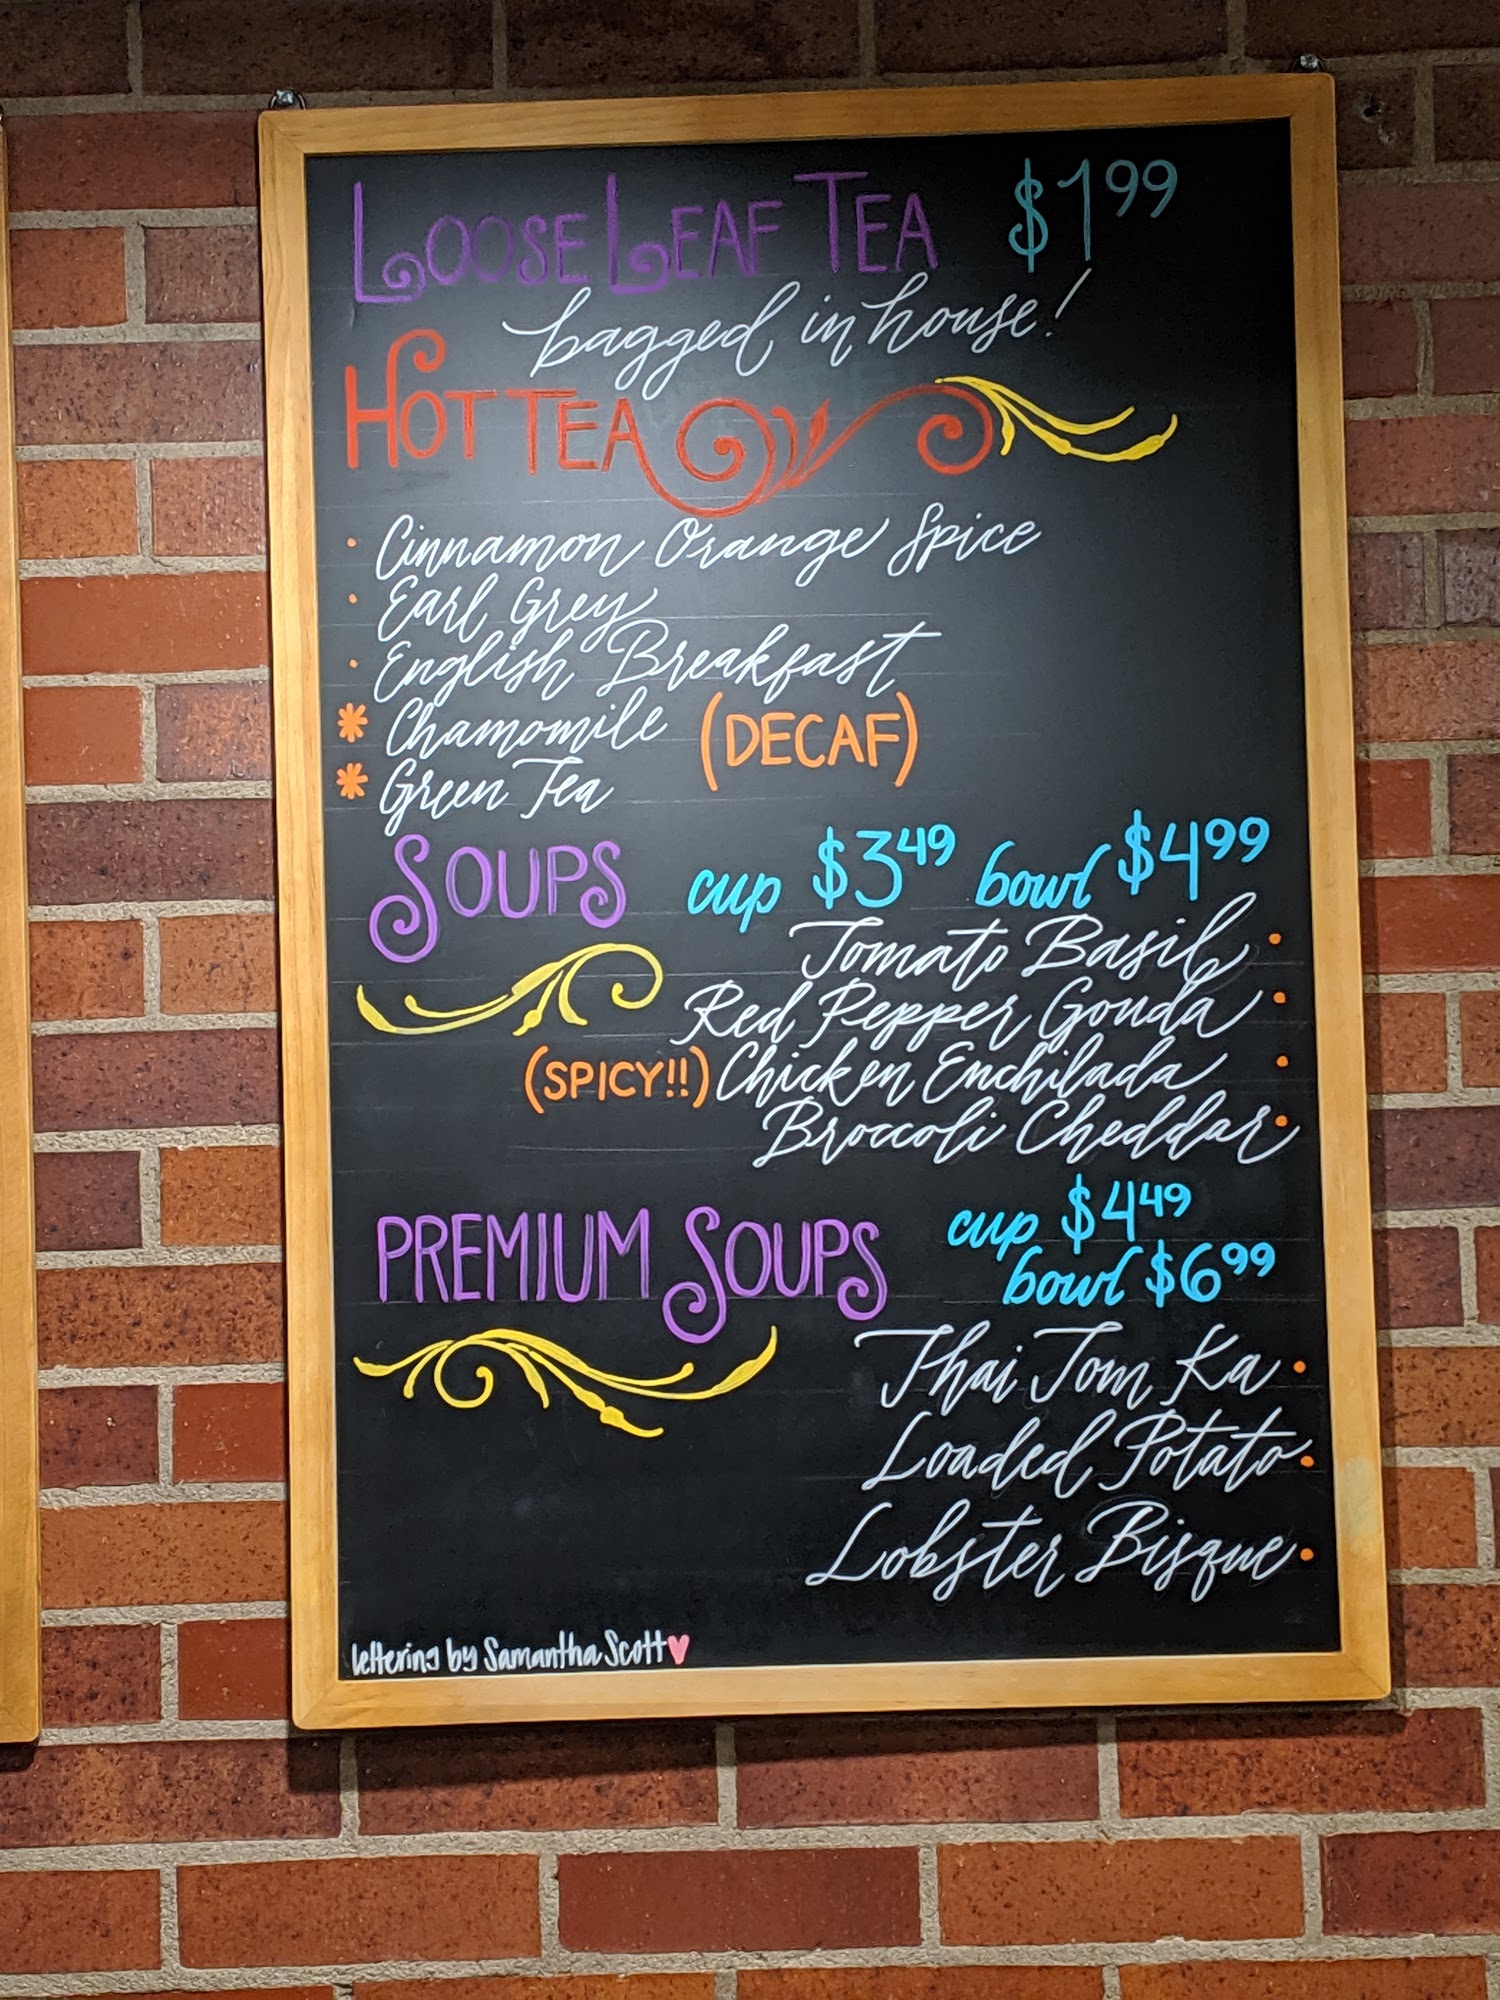 LOOSE LEAF TEA $1.99
bagged in house!
HOT TEA
• Cinnamon Orange Spice
• Earl Grey
• English Breakfast
* Chamomile (DECAF)
* Green Tea
SOUPS cup $3.49 bowl $4.99
Tomato Basil •
Red Pepper Gouda •
(SPICY!!) Chicken Enchilada •
Broccoli Cheddar •
PREMIUM SOUPS cup $4.49
bowl $6.99
Thai Tom Ka •
Loaded Potato •
Lobster Bisque •
lettering by Samantha Scott ♥